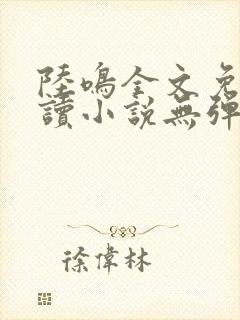 陸鳴全文免
讀小說無彈
徐偉林